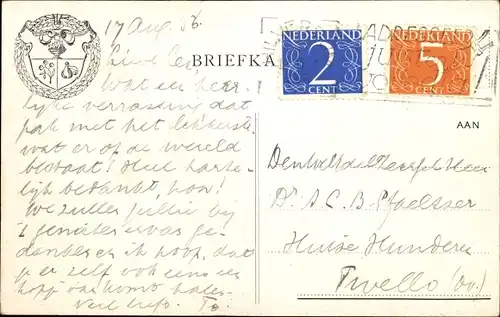 17 Aug. 56.
BRIEFKA
NEDERLAND
2
CENT
NEDERLAND
5
CENT
Wat een heer-
lijke verrassing dat
pak met het lekkerste
wat er op de wereld
bestaat! Heel harte-
lijk bedankt, hoor!
We zullen jullie bij
't genieten
danken en ik hoop, dat
je er zelf ook eens een
kopje van komt halen.
Veel liefs. To.
AAN
Den
Dr. A. C. B. Pfaeltzer
Huize Hunderen
Twello (Ov.)